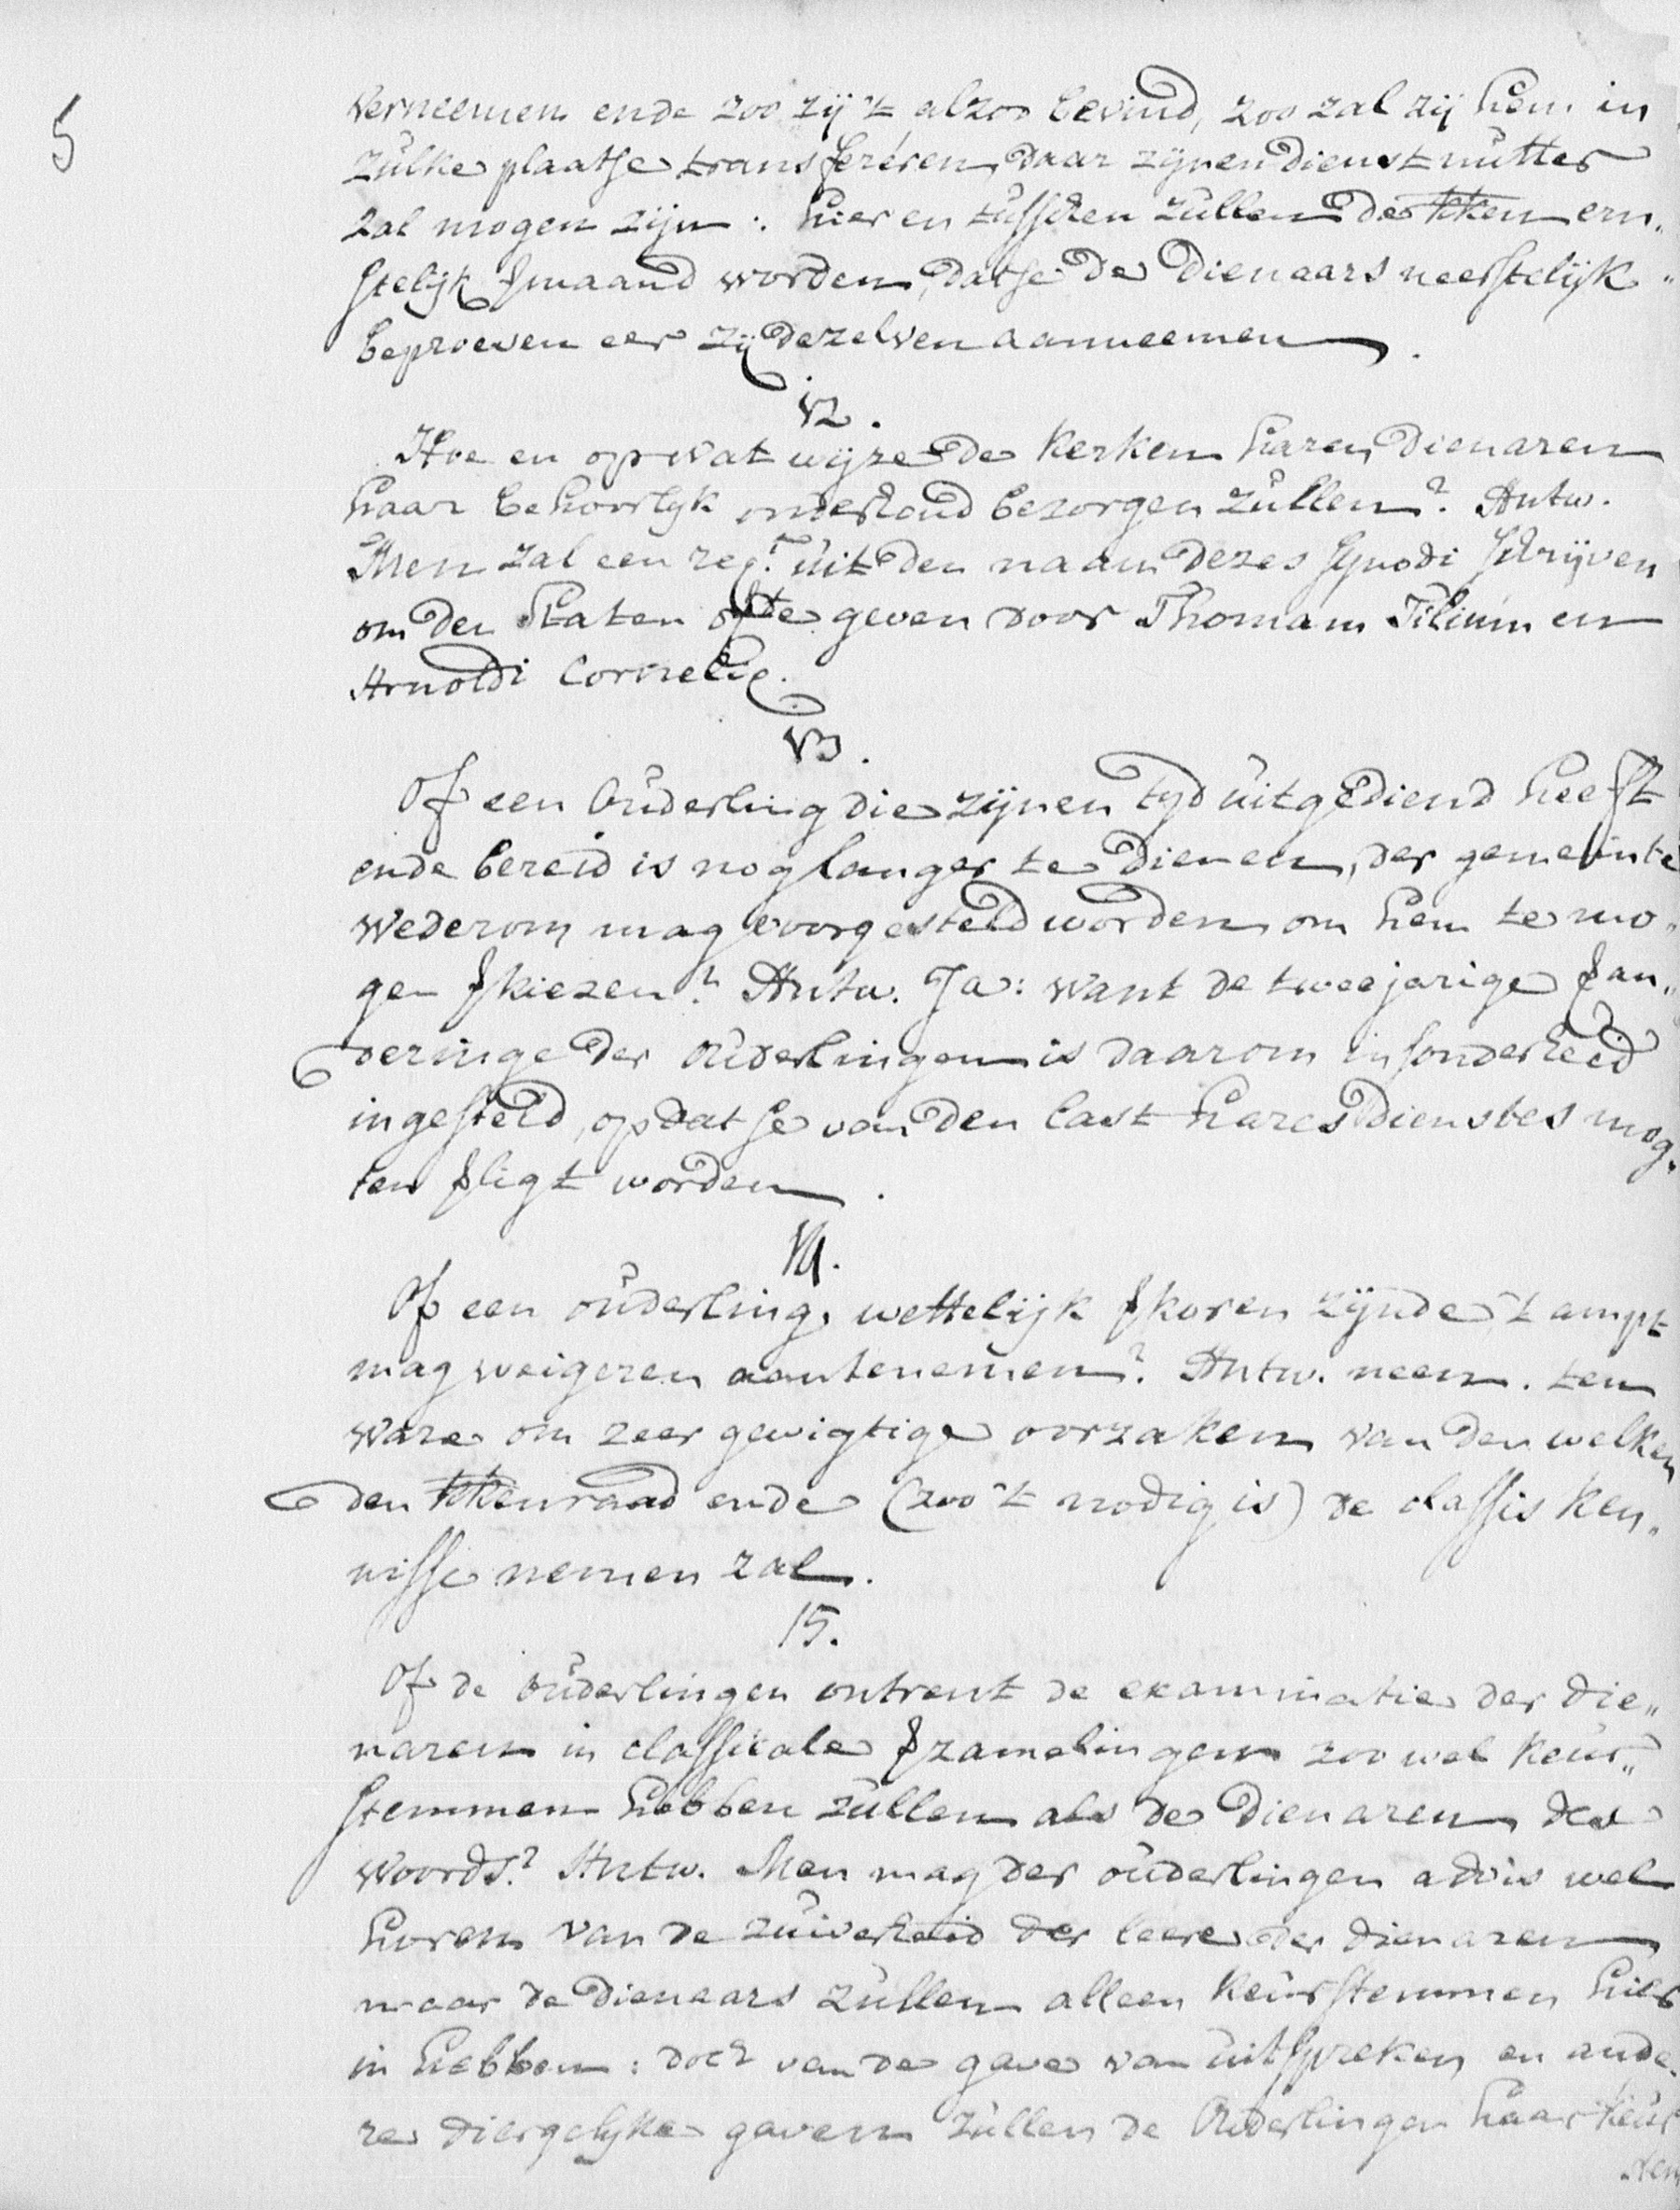 5
verneemen ende zoo zij 't alzoo bevind, zoo zal zij hem in
zulke plaatse transfereren daar zijnen dienst nutter
zal mogen zijn: hier en tusschen zullen de kken ern„
stelijk ꝟmaand worden, datse de Dienaars neerstelijk
beproeven eer zij dezelven aanneemen.
12.
Hoe en op wat wijze de Kerken haren Dienaren
haar behoorlyk onderhoud bezorgen zullen? Antw.
Men zal een reqt. uit den naam dezes Synodi schrijven
om den Staten ofte geven door Thomam Tilium en
Arnoldi Cornelij.
13.
Of een Ouderling die zijnen tyd uitgediend heeft
ende bereid is nog langer te dienen, der gemeinte
wederom mag voorgesteld worden om hem te mo„
gen ꝟkiezen? Antw. Ja: want de tweejarige ꝟan„
deringe der ouderlingen is daarom insonderheid
ingesteld, opdatse van den last hares dienstes mog„
ten ꝟligt worden.
14.
Of een ouderling, wettelijk ꝟkoren zijnde, 't ampt
mag weigeren aantenemen? Antw. neen. ten
ware om zeer gewigtige oorzaken van den welken
den kkenraad ende (zoo 't nodig is) de classis ken„
nisse nemen zal.
15.
Of de ouderlingen ontrent de examinatie der die„
naren in classicale ꝟzamelingen zoo wel keur„
stemmen hebben zullen als de Dienaren des
Woords? Antw. Men mag der ouderlingen advis wel
horen van de zuiverheid der leere der dienaren
maar de Dienaars zullen alleen keurstemmen hier
in hebben: doch van de gave van uitspreken en ande„
re diergelyke gaven zullen de Ouderlingen haar keur
stem